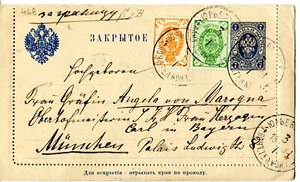 468
заграницу
ЗАКРЫТОЕ
Hochgeboren
Frau Gräfin Angela von Marogna
Oberhofmeisterin I. K. H. Frau Herzogin
Carl in Bayern
München Palais Ludwigstr 8
Для вскрытія - отрывать края по проколу.